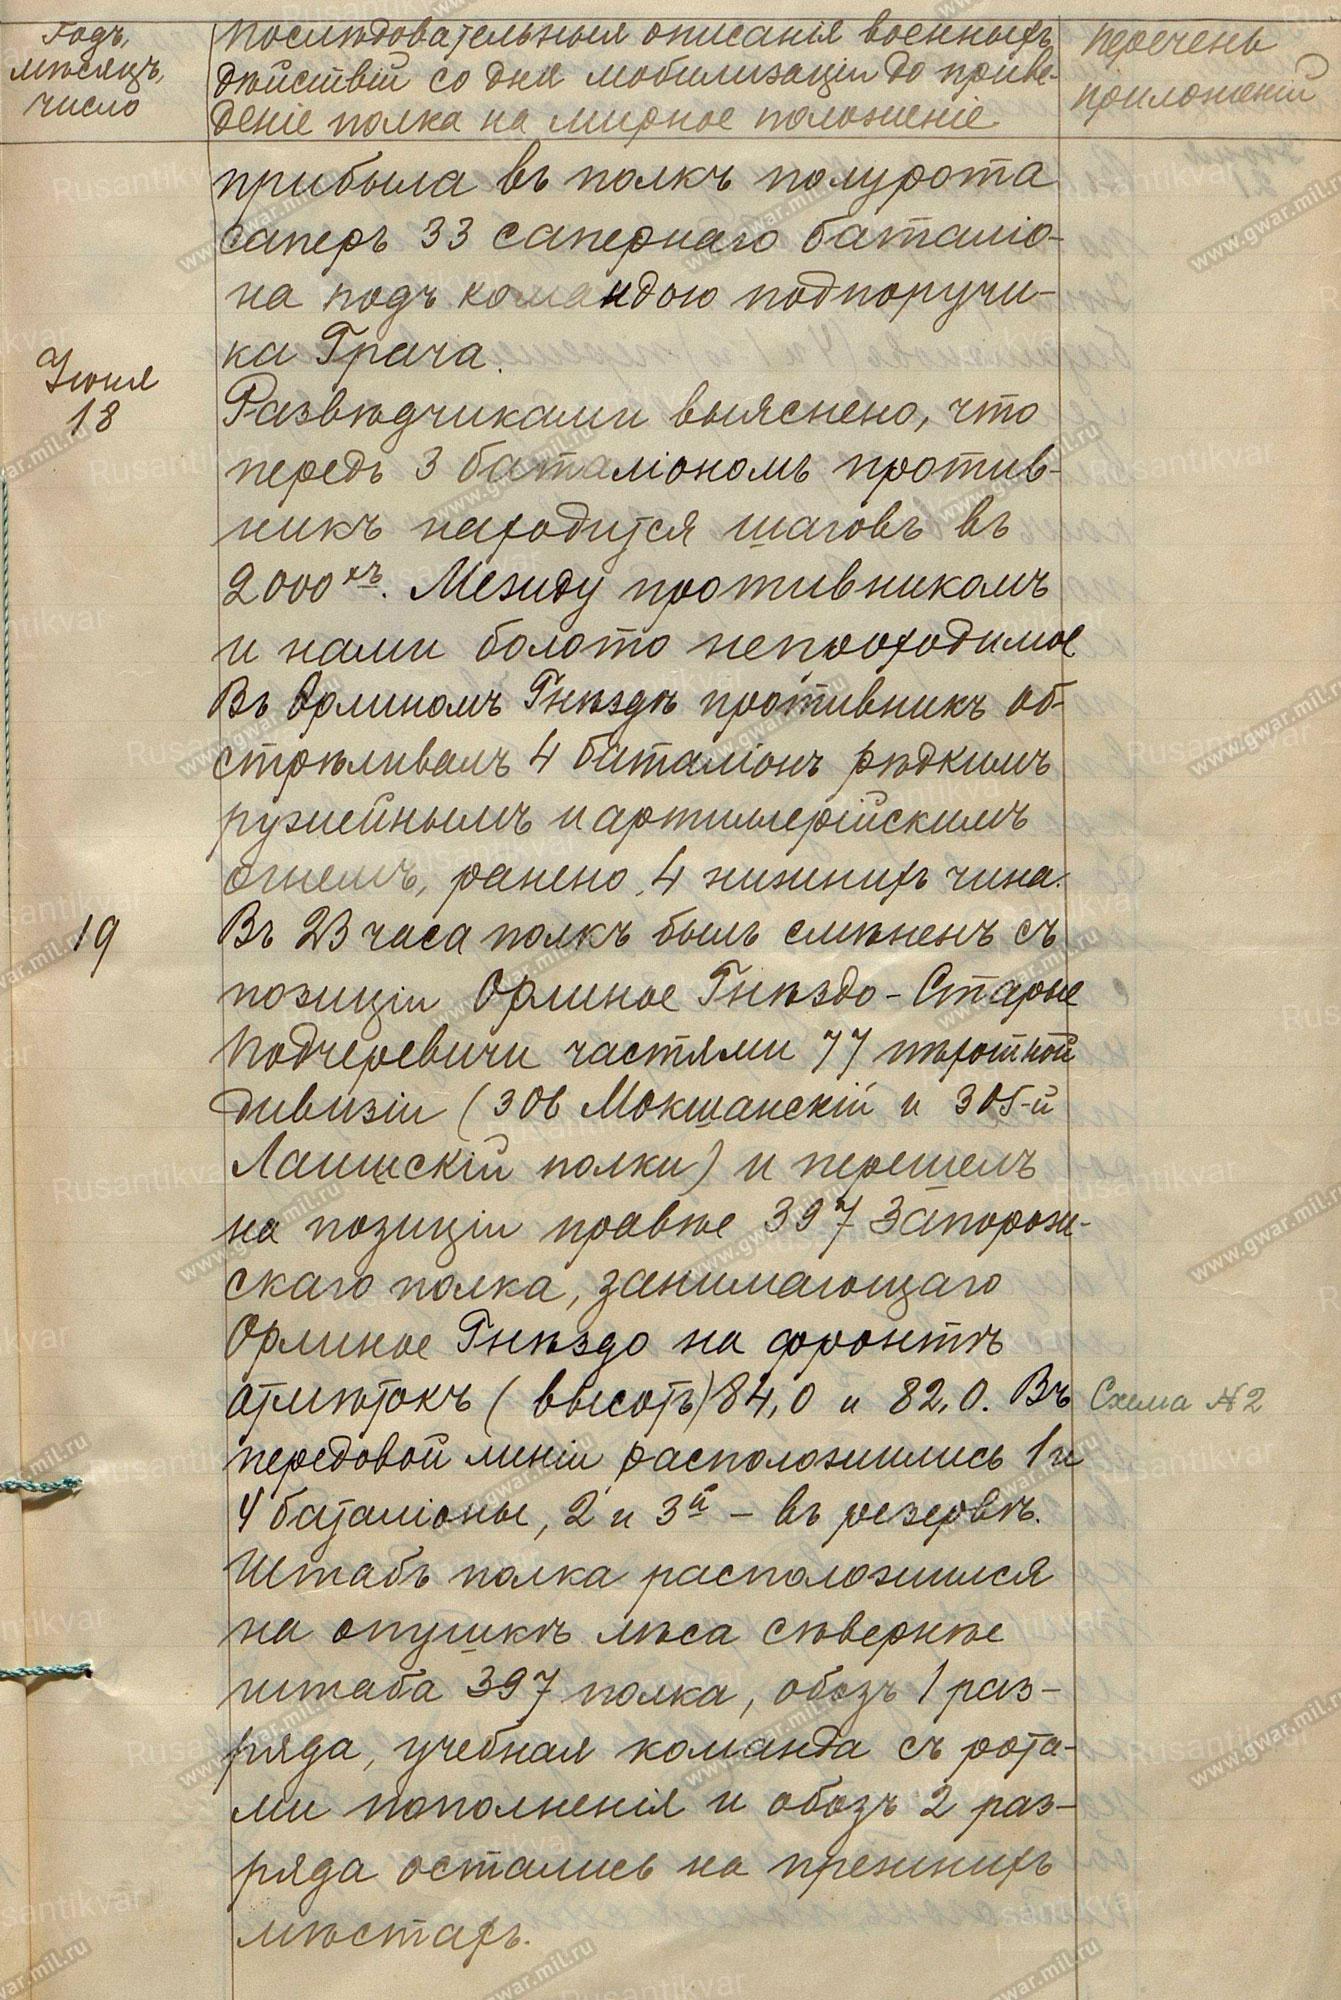 Годъ,
мѣсяцъ,
число
Послѣдовательныя описанія военныхъ
дѣйствій со дня мобилизаціи до приве-
деніе полка на мирное положеніе
перечень
приложеній
прибыла въ полкъ полурота
саперъ 33 сапернаго баталіо-
на подъ командою подпоручи-
ка Грача.
Іюня
18
Развѣдчиками выяснено, что
передъ 3 баталіономъ против-
никъ находится шаговъ въ
2000хъ. Между противникомъ
и нами болото непроходимое
Въ Орлиномъ Гнѣздѣ противникъ об-
стрѣливалъ 4 баталіонъ рѣдкимъ
ружейнымъ и артиллерійскимъ
огнемъ, ранено 4 нижнихъ чина.
19
Въ 23 часа полкъ былъ смѣненъ съ
позиціи Орлиное Гнѣздо - Старые
Подчеревичи частями 77 пѣхотной
дивизіи (306 Мокшанскій и 305-й
Лаишскій полки) и перешелъ
на позиціи правѣе 397 Запорож-
скаго полка, занимающаго
Орлиное Гнѣздо на фронтѣ
отмѣтокъ (высотъ) 84,0 и 82,0. Въ
Схема №2
передовой линіи расположились 1 и
4 баталіоны, 2 и 3й - въ резервѣ.
Штабъ полка расположился
на опушкѣ лѣса сѣвернѣе
штаба 397 полка, обозъ 1 раз-
ряда, учебная команда съ рота-
ми пополненія и обозъ 2 раз-
ряда остались на прежнихъ
мѣстахъ.
Rusantikvar
www.gwar.mil.ru